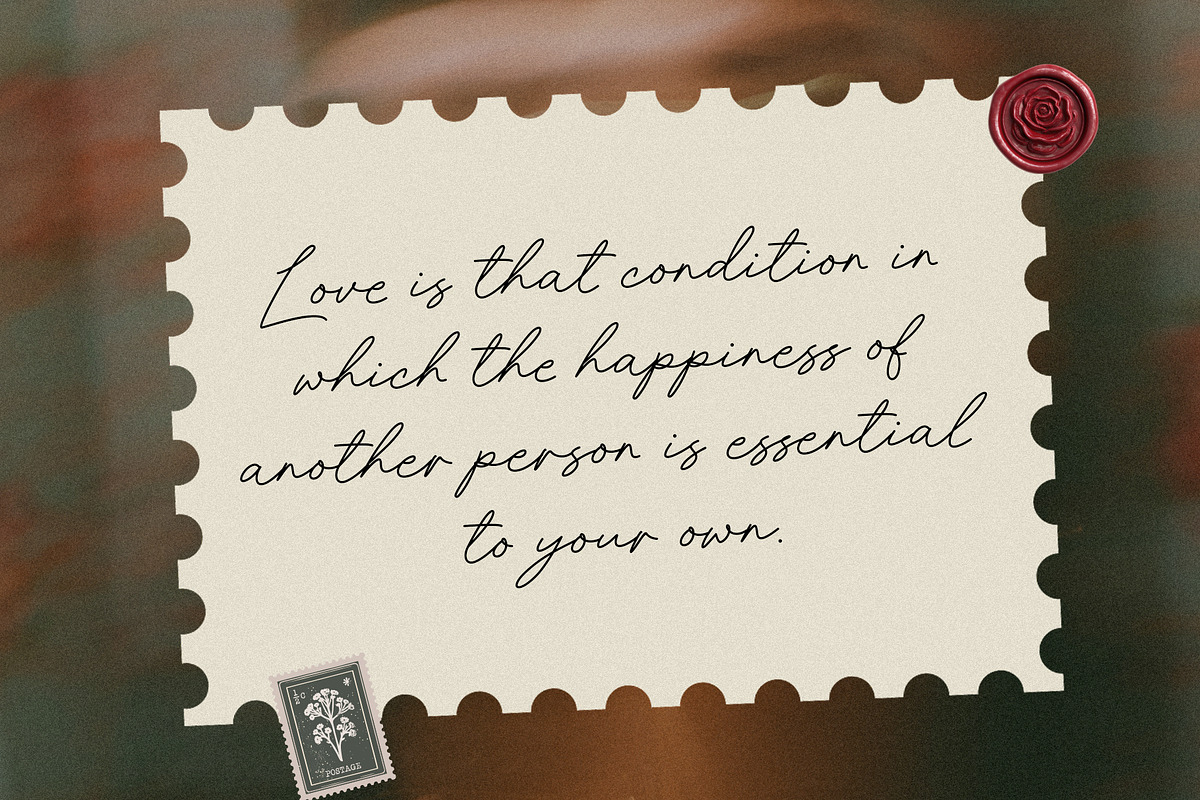 Love is that condition in
which the happiness of
another person is essential
to your own.
½ C
POSTAGE